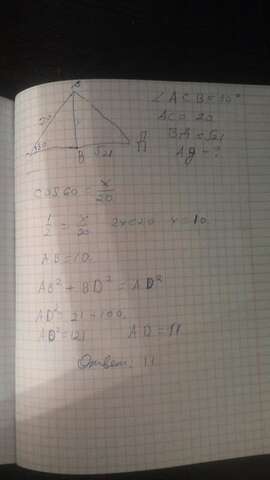 ∠ACB = 30°
AC = 20
BД = √21
AД - ?
20
B
√21
Д
cos 60 = x/20
1/2 = x/20  2x = 20  x = 10
AB = 10.
AB² + BD² = AD²
AD² = 21 + 100
AD² = 121  AD = 11
Ответ: 11